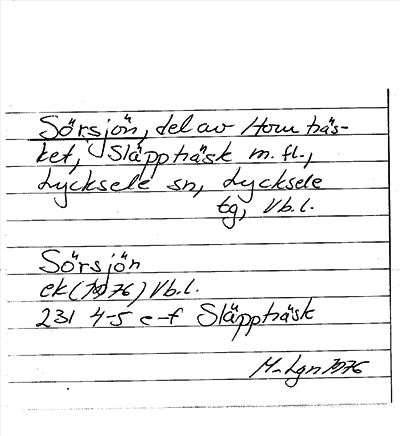 Sörsjön, del av Hornträs-
ket, Släppträsk m.fl.,
Lycksele sn, Lycksele
tg, Vb.l.
Sörsjön
ek (1976) Vb.l.
231 4-5 e-f Släppträsk
M-Lgn 1976